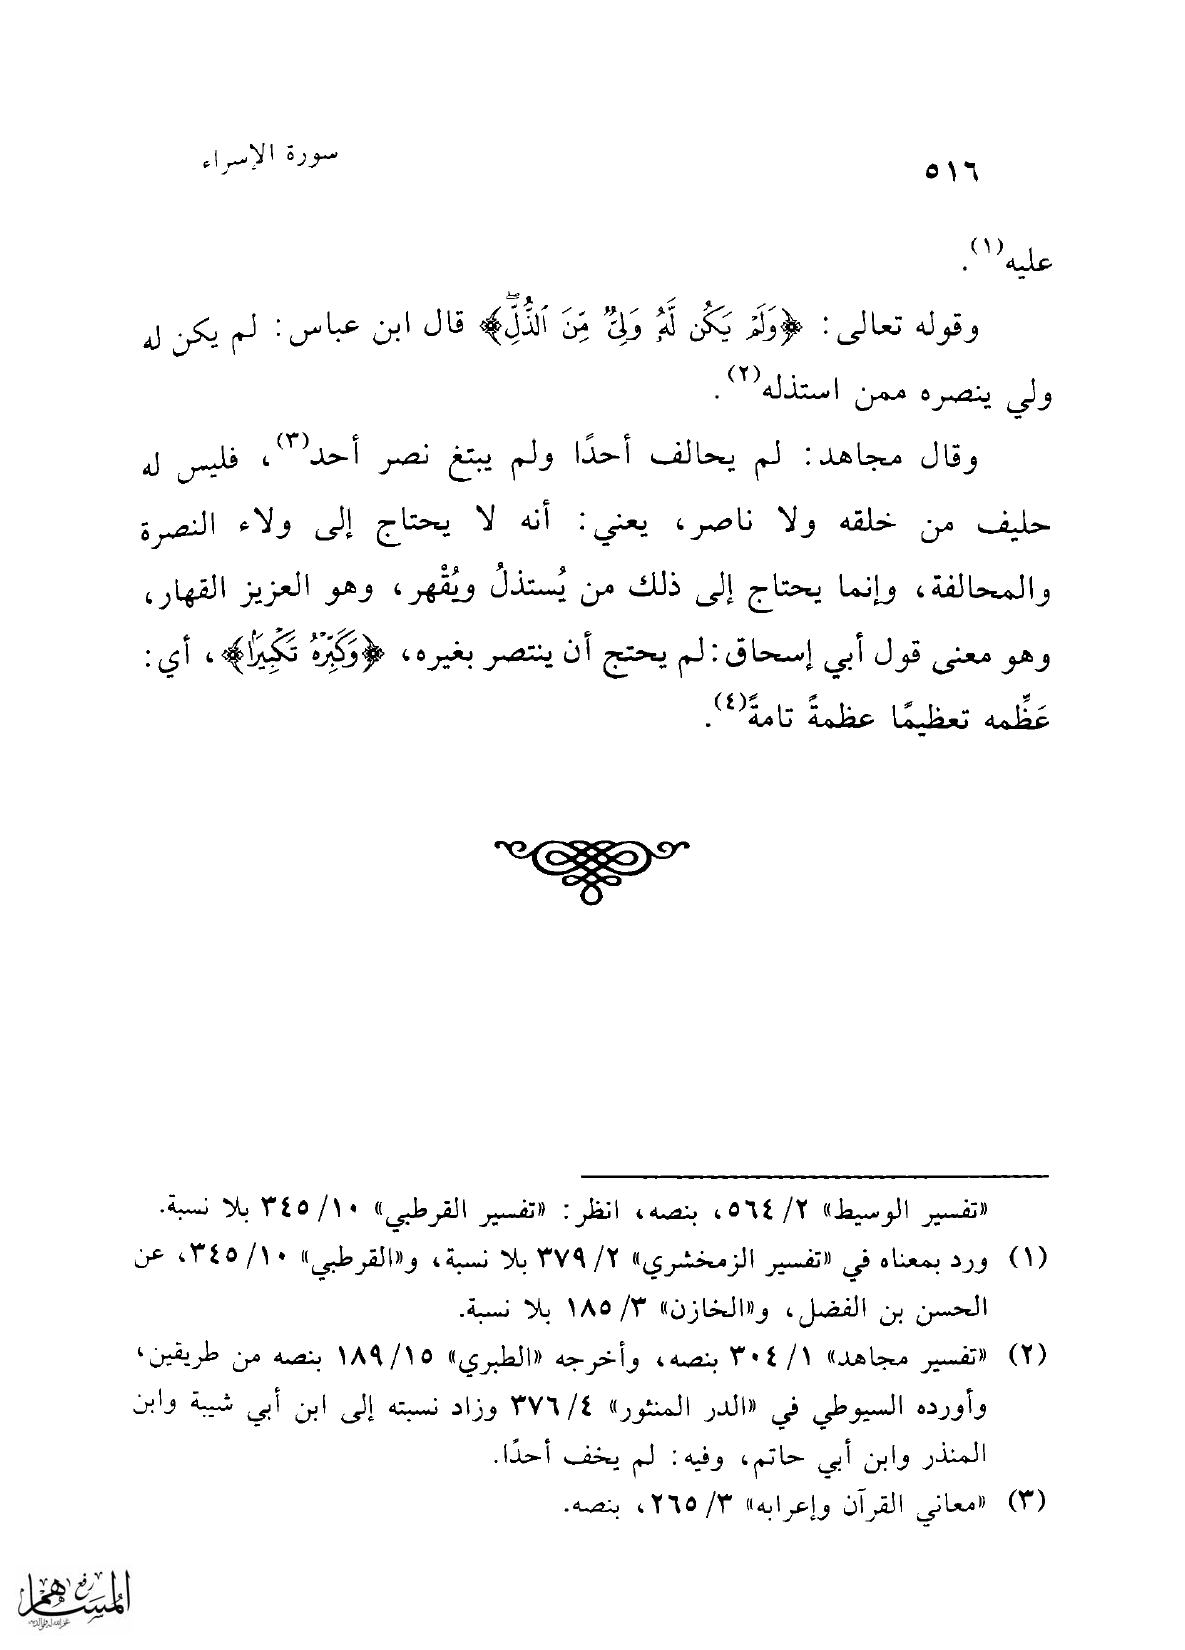 ٥١٦ سورة الإسراء
عليه(١).
وقوله تعالى: ﴿وَلَمْ يَكُن لَّهُۥ وَلِيٌّ مِّنَ ٱلذُّلِّۖ﴾ قال ابن عباس: لم يكن له
ولي ينصره ممن استذله(٢).
وقال مجاهد: لم يحالف أحدًا ولم يبتغ نصر أحد(٣)، فليس له
حليف من خلقه ولا ناصر، يعني: أنه لا يحتاج إلى ولاء النصرة
والمحالفة، وإنما يحتاج إلى ذلك من يُستذلُ ويُقْهر، وهو العزيز القهار،
وهو معنى قول أبي إسحاق: لم يحتج أن ينتصر بغيره، ﴿وَكَبِّرْهُ تَكْبِيرًا﴾، أي:
عَظِّمه تعظيمًا عظمةً تامةً(٤).
«تفسير الوسيط» ٢/ ٥٦٤، بنصه، انظر: «تفسير القرطبي» ١٠/ ٣٤٥ بلا نسبة.
(١) ورد بمعناه في «تفسير الزمخشري» ٢/ ٣٧٩ بلا نسبة، و«القرطبي» ١٠/ ٣٤٥، عن
الحسن بن الفضل، و«الخازن» ٣/ ١٨٥ بلا نسبة.
(٢) «تفسير مجاهد» ١/ ٣٠٤ بنصه، وأخرجه «الطبري» ١٥/ ١٨٩ بنصه من طريقين،
وأورده السيوطي في «الدر المنثور» ٤/ ٣٧٦ وزاد نسبته إلى ابن أبي شيبة وابن
المنذر وابن أبي حاتم، وفيه: لم يخف أحدًا.
(٣) «معاني القرآن وإعرابه» ٣/ ٢٦٥، بنصه.